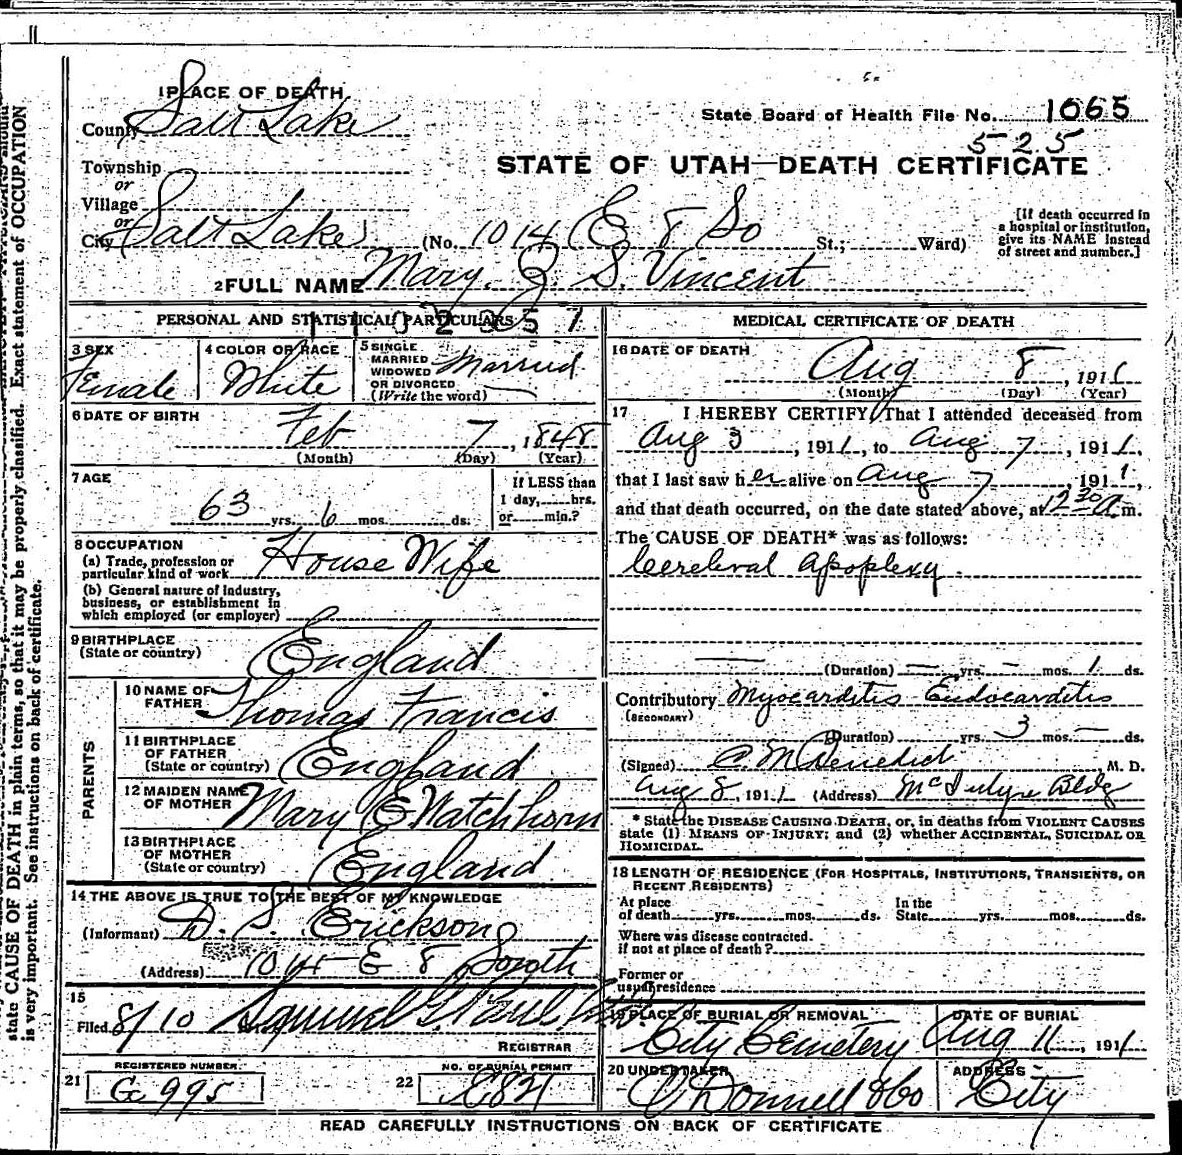 state CAUSE OF DEATH in plain terms, so that it may be properly classified. Exact statement of OCCUPATION
is very important. See instructions on back of certificate.
1 PLACE OF DEATH
County Salt Lake
State Board of Health File No. 1065
525
Township
or
Village
or
City Salt Lake (No. 1014 E 8 So St.; Ward)
STATE OF UTAH—DEATH CERTIFICATE
[If death occurred in
a hospital or institution,
give its NAME instead
of street and number.]
2 FULL NAME Mary. J. S. Vincent
PERSONAL AND STATISTICAL PARTICULARS
3 SEX
Female
4 COLOR OR RACE
White
5 SINGLE
MARRIED
WIDOWED
OR DIVORCED
(Write the word)
Married
6 DATE OF BIRTH
Feb 7, 1848
(Month) (Day) (Year)
7 AGE
63 yrs. 6 mos. ds.
If LESS than
1 day, hrs.
or min.?
8 OCCUPATION
(a) Trade, profession or
particular kind of work
House Wife
(b) General nature of industry,
business, or establishment in
which employed (or employer)
9 BIRTHPLACE
(State or country)
England
PARENTS
10 NAME OF
FATHER
Thomas Francis
11 BIRTHPLACE
OF FATHER
(State or country)
England
12 MAIDEN NAME
OF MOTHER
Mary E Watchhorn
13 BIRTHPLACE
OF MOTHER
(State or country)
England
14 THE ABOVE IS TRUE TO THE BEST OF MY KNOWLEDGE
(Informant) D. S. Erickson
(Address) 1014 E 8 South
15
Filed 8/10 Samuel G. Paul
REGISTRAR
REGISTERED NUMBER.
21 G 995
NO. OF BURIAL PERMIT
22
MEDICAL CERTIFICATE OF DEATH
16 DATE OF DEATH
Aug 8, 1911
(Month) (Day) (Year)
17 I HEREBY CERTIFY, That I attended deceased from
Aug 3, 1911, to Aug 7, 1911,
that I last saw her alive on Aug 7, 1911,
and that death occurred, on the date stated above, at 12 30 A.m.
The CAUSE OF DEATH* was as follows:
Cerebral Apoplexy
(Duration) — yrs. — mos. 1 ds.
Contributory Myocarditis Endocarditis
(SECONDARY)
(Duration) yrs. 3 mos. — ds.
(Signed) C. M. Benedict M. D.
Aug 8, 1911 (Address) McIntyre Bldg
* State the DISEASE CAUSING DEATH, or, in deaths from VIOLENT CAUSES
state (1) MEANS OF INJURY; and (2) whether ACCIDENTAL, SUICIDAL OR
HOMICIDAL.
18 LENGTH OF RESIDENCE (FOR HOSPITALS, INSTITUTIONS, TRANSIENTS, OR
RECENT RESIDENTS)
At place
of death yrs. mos. ds.
In the
State yrs. mos. ds.
Where was disease contracted.
if not at place of death?
Former or
usual residence
19 PLACE OF BURIAL OR REMOVAL
City Cemetery
DATE OF BURIAL
Aug 11, 1911
20 UNDERTAKER
O'Donnell & Co
ADDRESS
City
READ CAREFULLY INSTRUCTIONS ON BACK OF CERTIFICATE